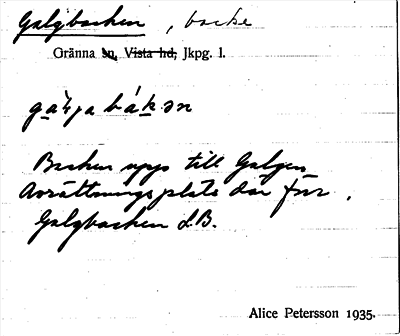 Galgbacken, backe
Gränna sn, Vista hd, Jkpg. l.
Backen upp till Galgen
Avrättningsplats där förr.
Galgbacken L.B.
Alice Petersson 1935.